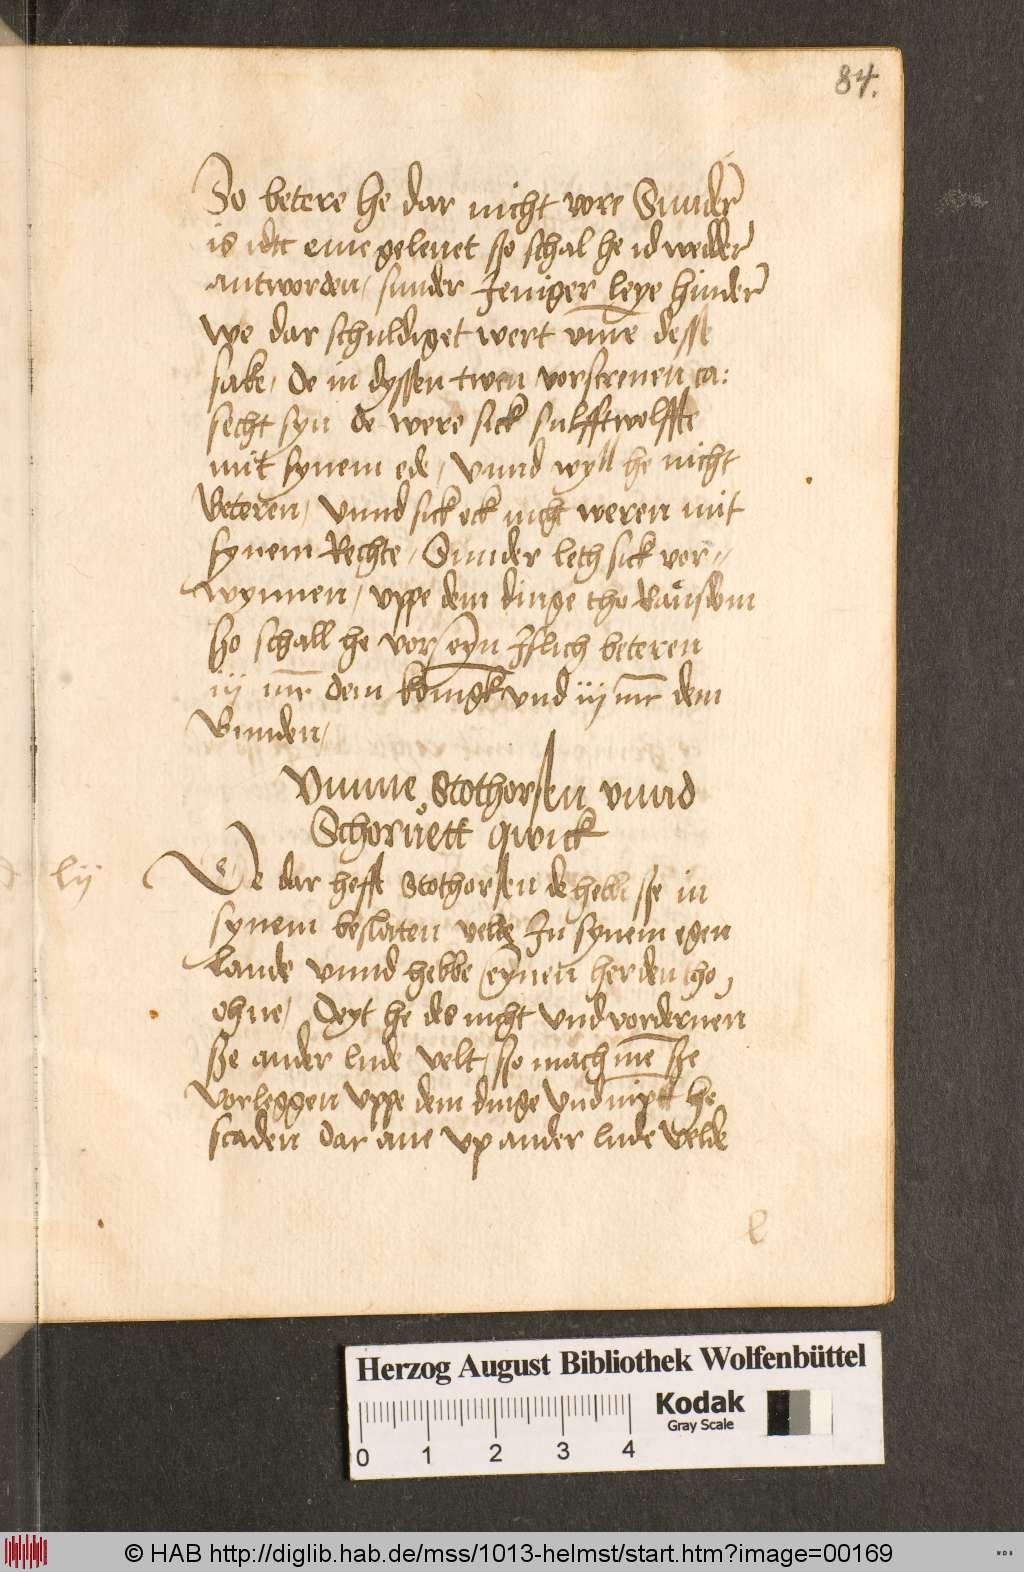 84.
So betere he dar nicht vore Sunder
is idt eme geleuet sso schal he id wedder
antworden / sunder Jeniger leye hinder
we dar schuldiget wert vmē desse
sake / de in dyssen twen vorscreuen ca:
secht syn de were sick sulfftwolffte
mit synem ede / Vnnd wyll he nicht
Beteren / Vnnd sick ock nicht weren mit
synem Rechte / Sunder leth sick vor-
wynnen / vppe dem dinge tho
so schall he vor eyn Jslich beteren
iij mr dem konigk vnd iij mr dem
Bunden /
Vmme Stothorssen vnnd
Schoruett qwick
lij
We dar hefft Stothorssen de hebbe sse in
synem beslaten velde In synem egen
lande vnnd hebbe eynen herden tho
ohne / Deyt he des nicht Vnd vorderuen
sze ander lude velt / sso mach mē sze
vorleggen Vppe dem dinge Vnd nipt he
scaden dar ane vp ander lude velde
l
Herzog August Bibliothek Wolfenbüttel
Kodak
Gray Scale
0 1 2 3 4
© HAB http://diglib.hab.de/mss/1013-helmst/start.htm?image=00169